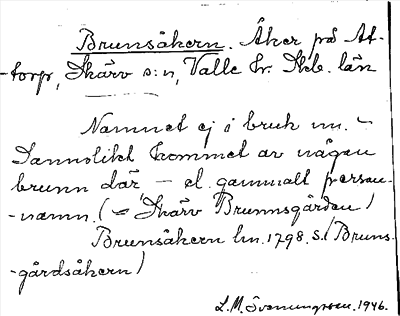 Brunsåkern. Åker på At-
-torp, Skärv s:n, Valle hr. Skb. län
Namnet ej i bruk nu. -
Sannolikt kommet av någon
brunn där - el. gammalt person-
-namn. (= Skärv Brunnsgården)
Brunsåkern lm. 1798. S. (Bruns-
-gårdsåkern)
L.M. Svenungsson. 1946.